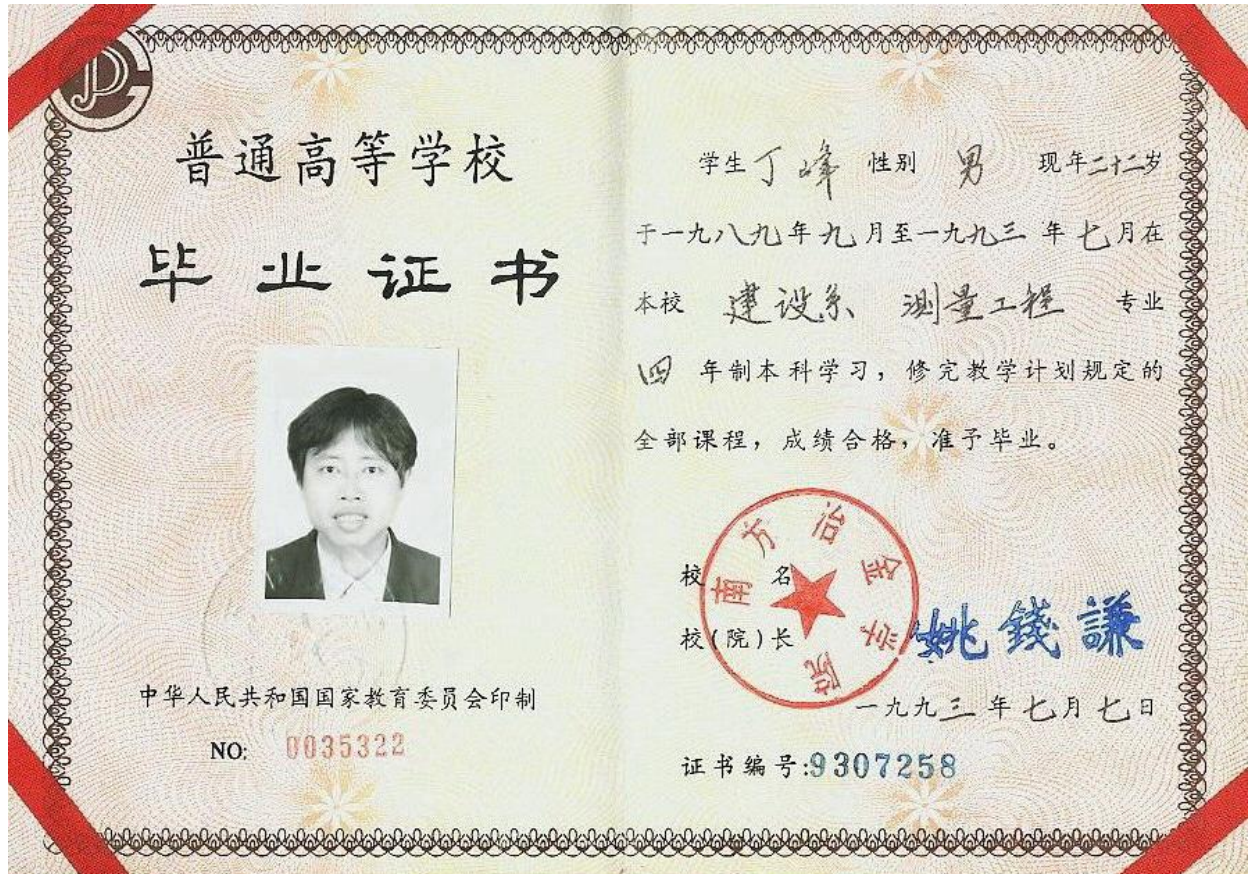 普通高等学校
毕业证书
中华人民共和国国家教育委员会印制
NO: 0035322
学生丁峰 性别 男 现年二十二岁
于一九八九年九月至一九九三年七月在
本校 建设系 测量工程 专业
四年制本科学习，修完教学计划规定的
全部课程，成绩合格，准予毕业。
南方冶金学院
校名
校(院)长 姚錢謙
一九九三年七月七日
证书编号:9307258